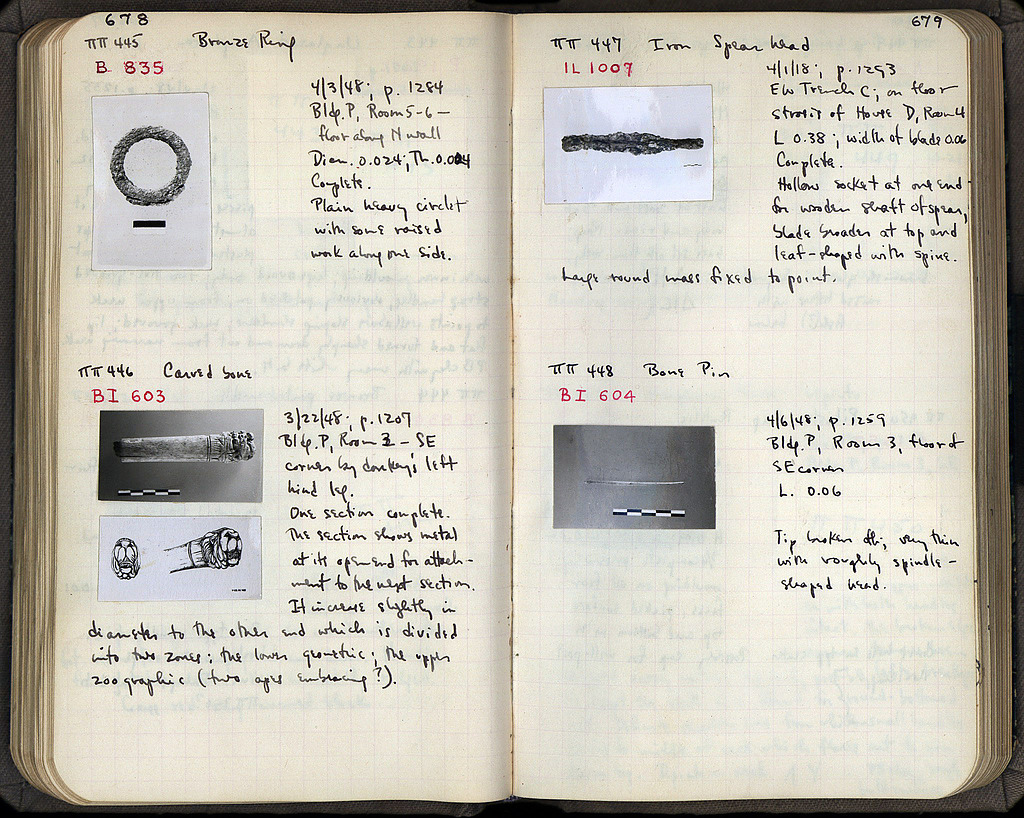 678
ΠΠ 445 Bronze Ring
B 835
4/3/48; p. 1284
Bldg. P, Room 5-6 –
floor along N wall
Diam. 0.024; Th. 0.004
Complete.
Plain heavy circlet
with some raised
work along one side.
ΠΠ 446 Carved bone
BI 603
3/22/48; p. 1207
Bldg. P, Room 3 – SE
corner by donkey's left
hind leg.
One section complete.
The section shows metal
at its open end for attach-
ment to the next section.
It increase slightly in
diameter to the other end which is divided
into two zones: the lower geometric; the upper
zoographic (two apes embracing?).
679
ΠΠ 447 Iron Spear head
IL 1007
4/1/18; p. 1293
EW Trench C; on floor
strosis of House D, Room 4
L 0.38; width of blade 0.06
Complete.
Hollow socket at one end
for wooden shaft of spear,
blade broader at top and
leaf-shaped with spine.
Large round mass fixed to point.
ΠΠ 448 Bone Pin
BI 604
4/6/48; p. 1259
Bldg. P, Room 3, floor of
SE corner
L. 0.06
Tip broken off; very thin
with roughly spindle-
shaped head.